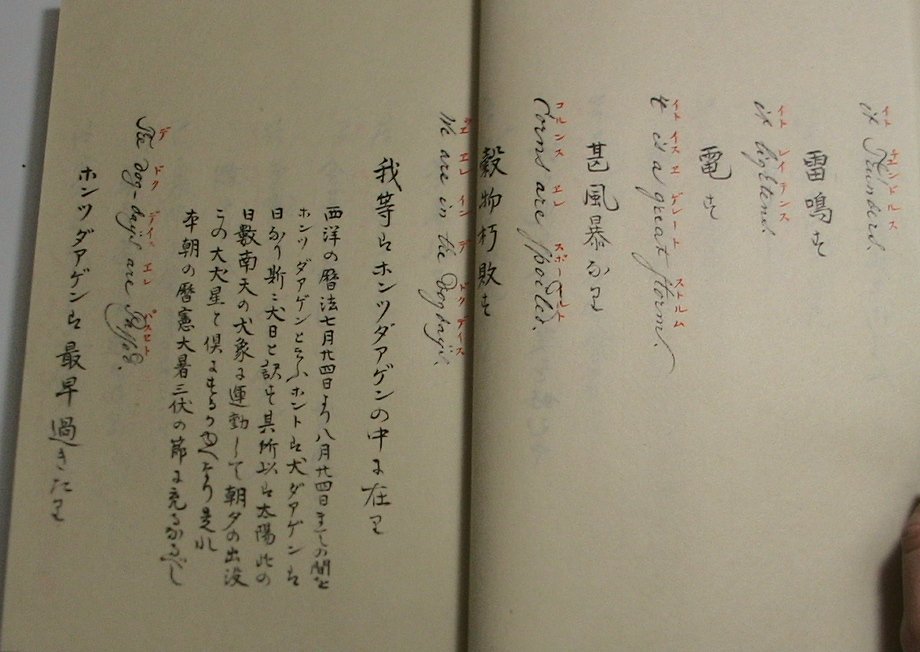 イト ヱンドルス
it Thunders.
雷鳴す
イト レイテンス
it lightens.
電す
イト イス エ ゲレート ストルム
it is a great storm.
甚風暴なり
コルンス エレ スポールト
Corns are spoiled.
穀物朽敗す
ヱ エレ イン デ ドク デイス
We are in the Dog-days.
我等はホンツダアゲンの中に在り
西洋の暦法七月廿四日より八月廿四日までの間を
ホンツダアゲンと云ふホントは犬ダアゲンは
日なり斯に犬日と訳す其所以は太陽此の
日数南天の犬象に運動して朝夕の出没
この大犬星と倶にするのゆへなり是れ
本朝の暦憲大暑三伏の節に充るなるべし
デ ドク デイス エレ パスセト
The Dog-days are passed.
ホンツダアゲンは最早過きたり